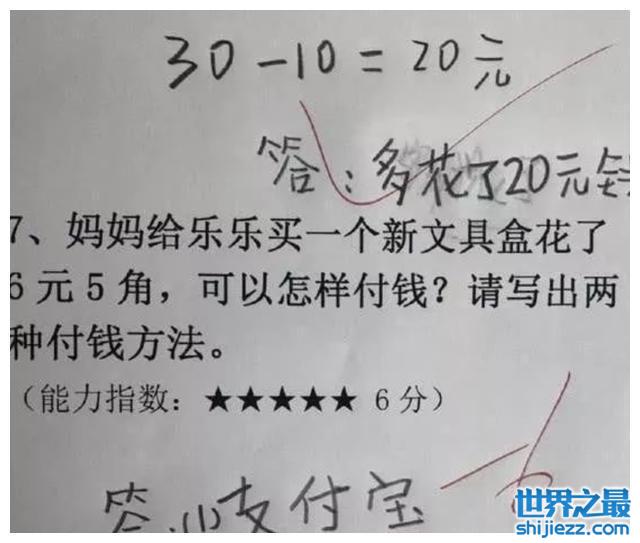 30-10=20元
答：多花了20元钱
7、妈妈给乐乐买一个新文具盒花了
6元5角，可以怎样付钱？请写出两
种付钱方法。
（能力指数：★★★★★ 6分）
-6
答:(1)支付宝
世界之最
shijiezz.com